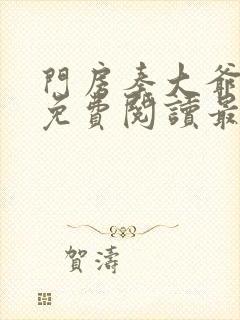 門房秦大爺
免費閱讀最
賀濤